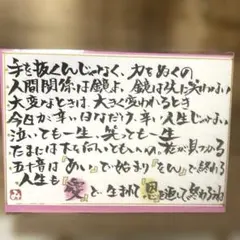 手を抜くんじゃなく、力をぬくの
人間関係は鏡よ、鏡は先に笑わない
大変なときは、大きく変われるとき
今日が辛いはなだけ、辛い人生じゃない
泣いても一生、笑っても一生
たまには下を向いてもいいの。花が見つかる
五十音は『あい』で始まり『をん』で終わる
人生も『愛』で生まれて『恩』を返して終わるね